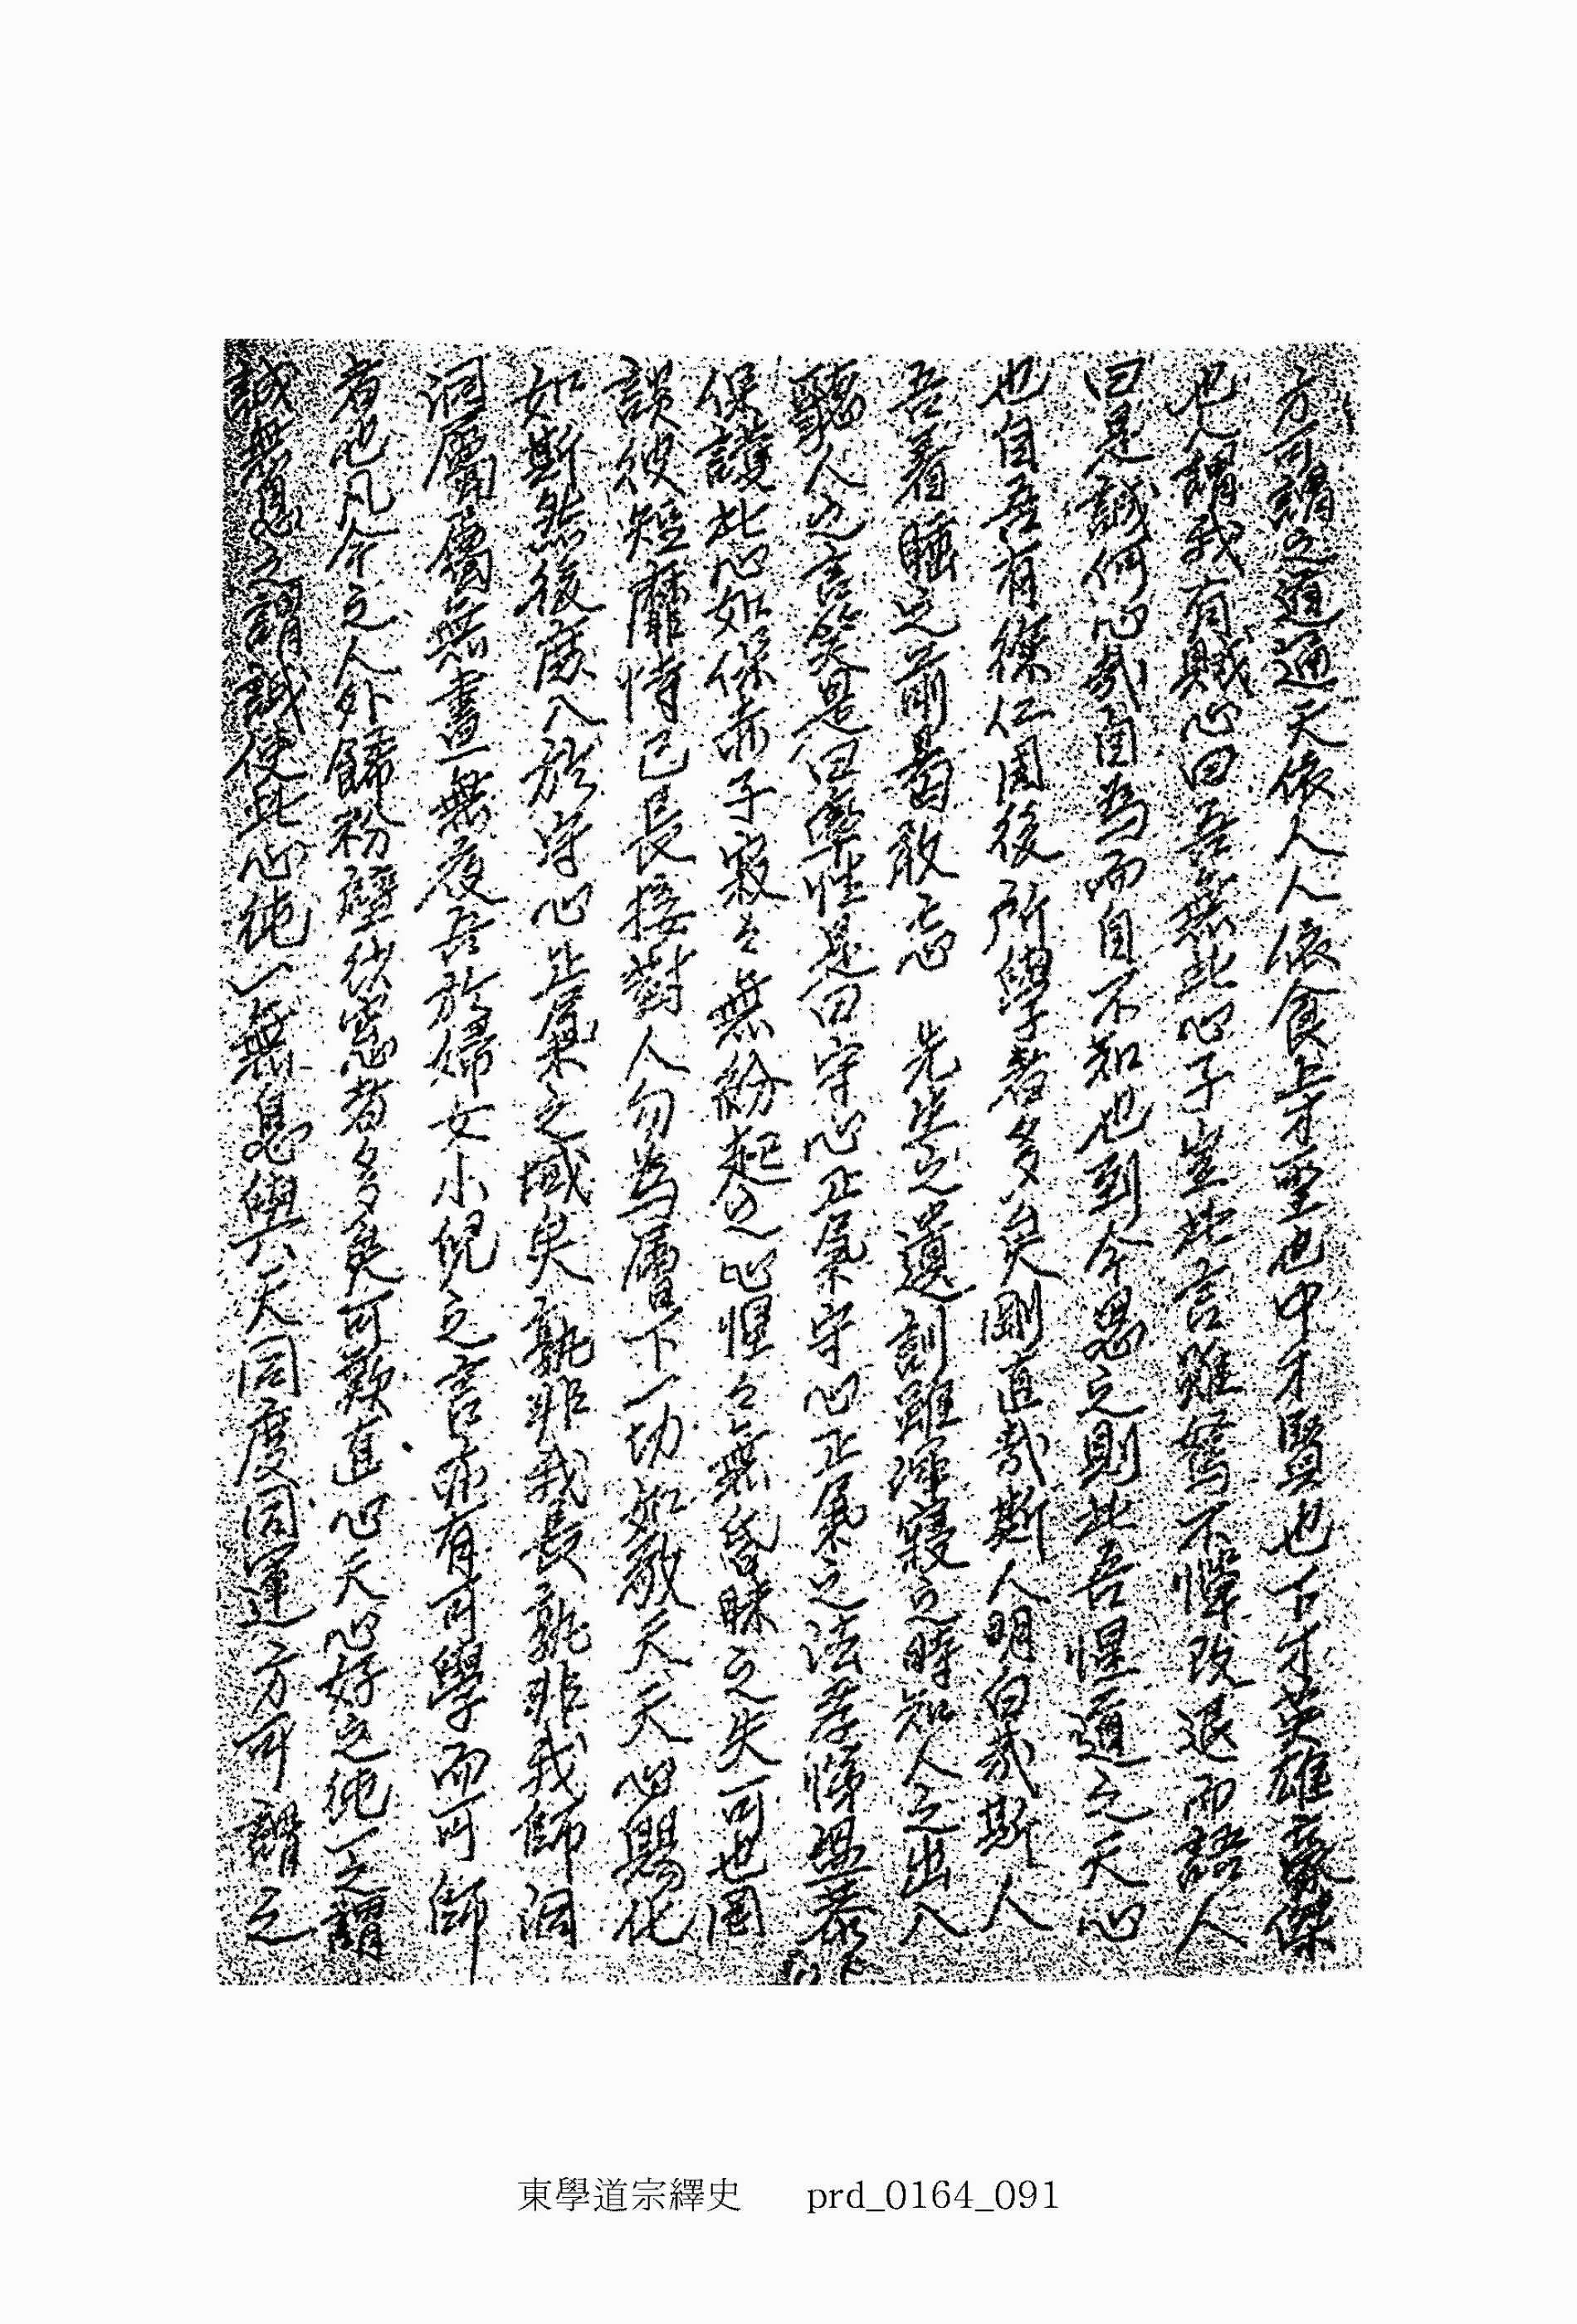 方可謂之道通天依人人依食上才聖也中才賢也下才英雄豪傑
也人謂我有賊心曰吾無此心子豈此言雖驚不憚改退而語人
曰是誠何心哉自爲而自不知也到今思之則此吾惺道之天心
也自吾有徠仁國後所學者多矣剛直哉斯人明白哉斯人
吾着睡之前曷敢忘 先生之遺訓雖渾寢之時知人之出入
聽人之言笑是曰率性是曰守心正氣守心正氣之法孝悌溫恭
保護此心如保赤子寂々無紛起之心惺々無昏昧之失可也罔
談彼短靡恃己長接對人勿爲層下一切如敬天天心賜化
如斯然後庶入於守心正氣之域矣孰非我長孰非我師洞
洞屬屬無晝無夜吾於婦女小兒之言亦有可學而可師
者也凡今之人外餙粉壁伏窓者多矣可歎直心天心好之純一之謂
誠無息之謂誠使此心純一無息與天同度同運方可謂之
東學道宗繹史 prd_0164_091